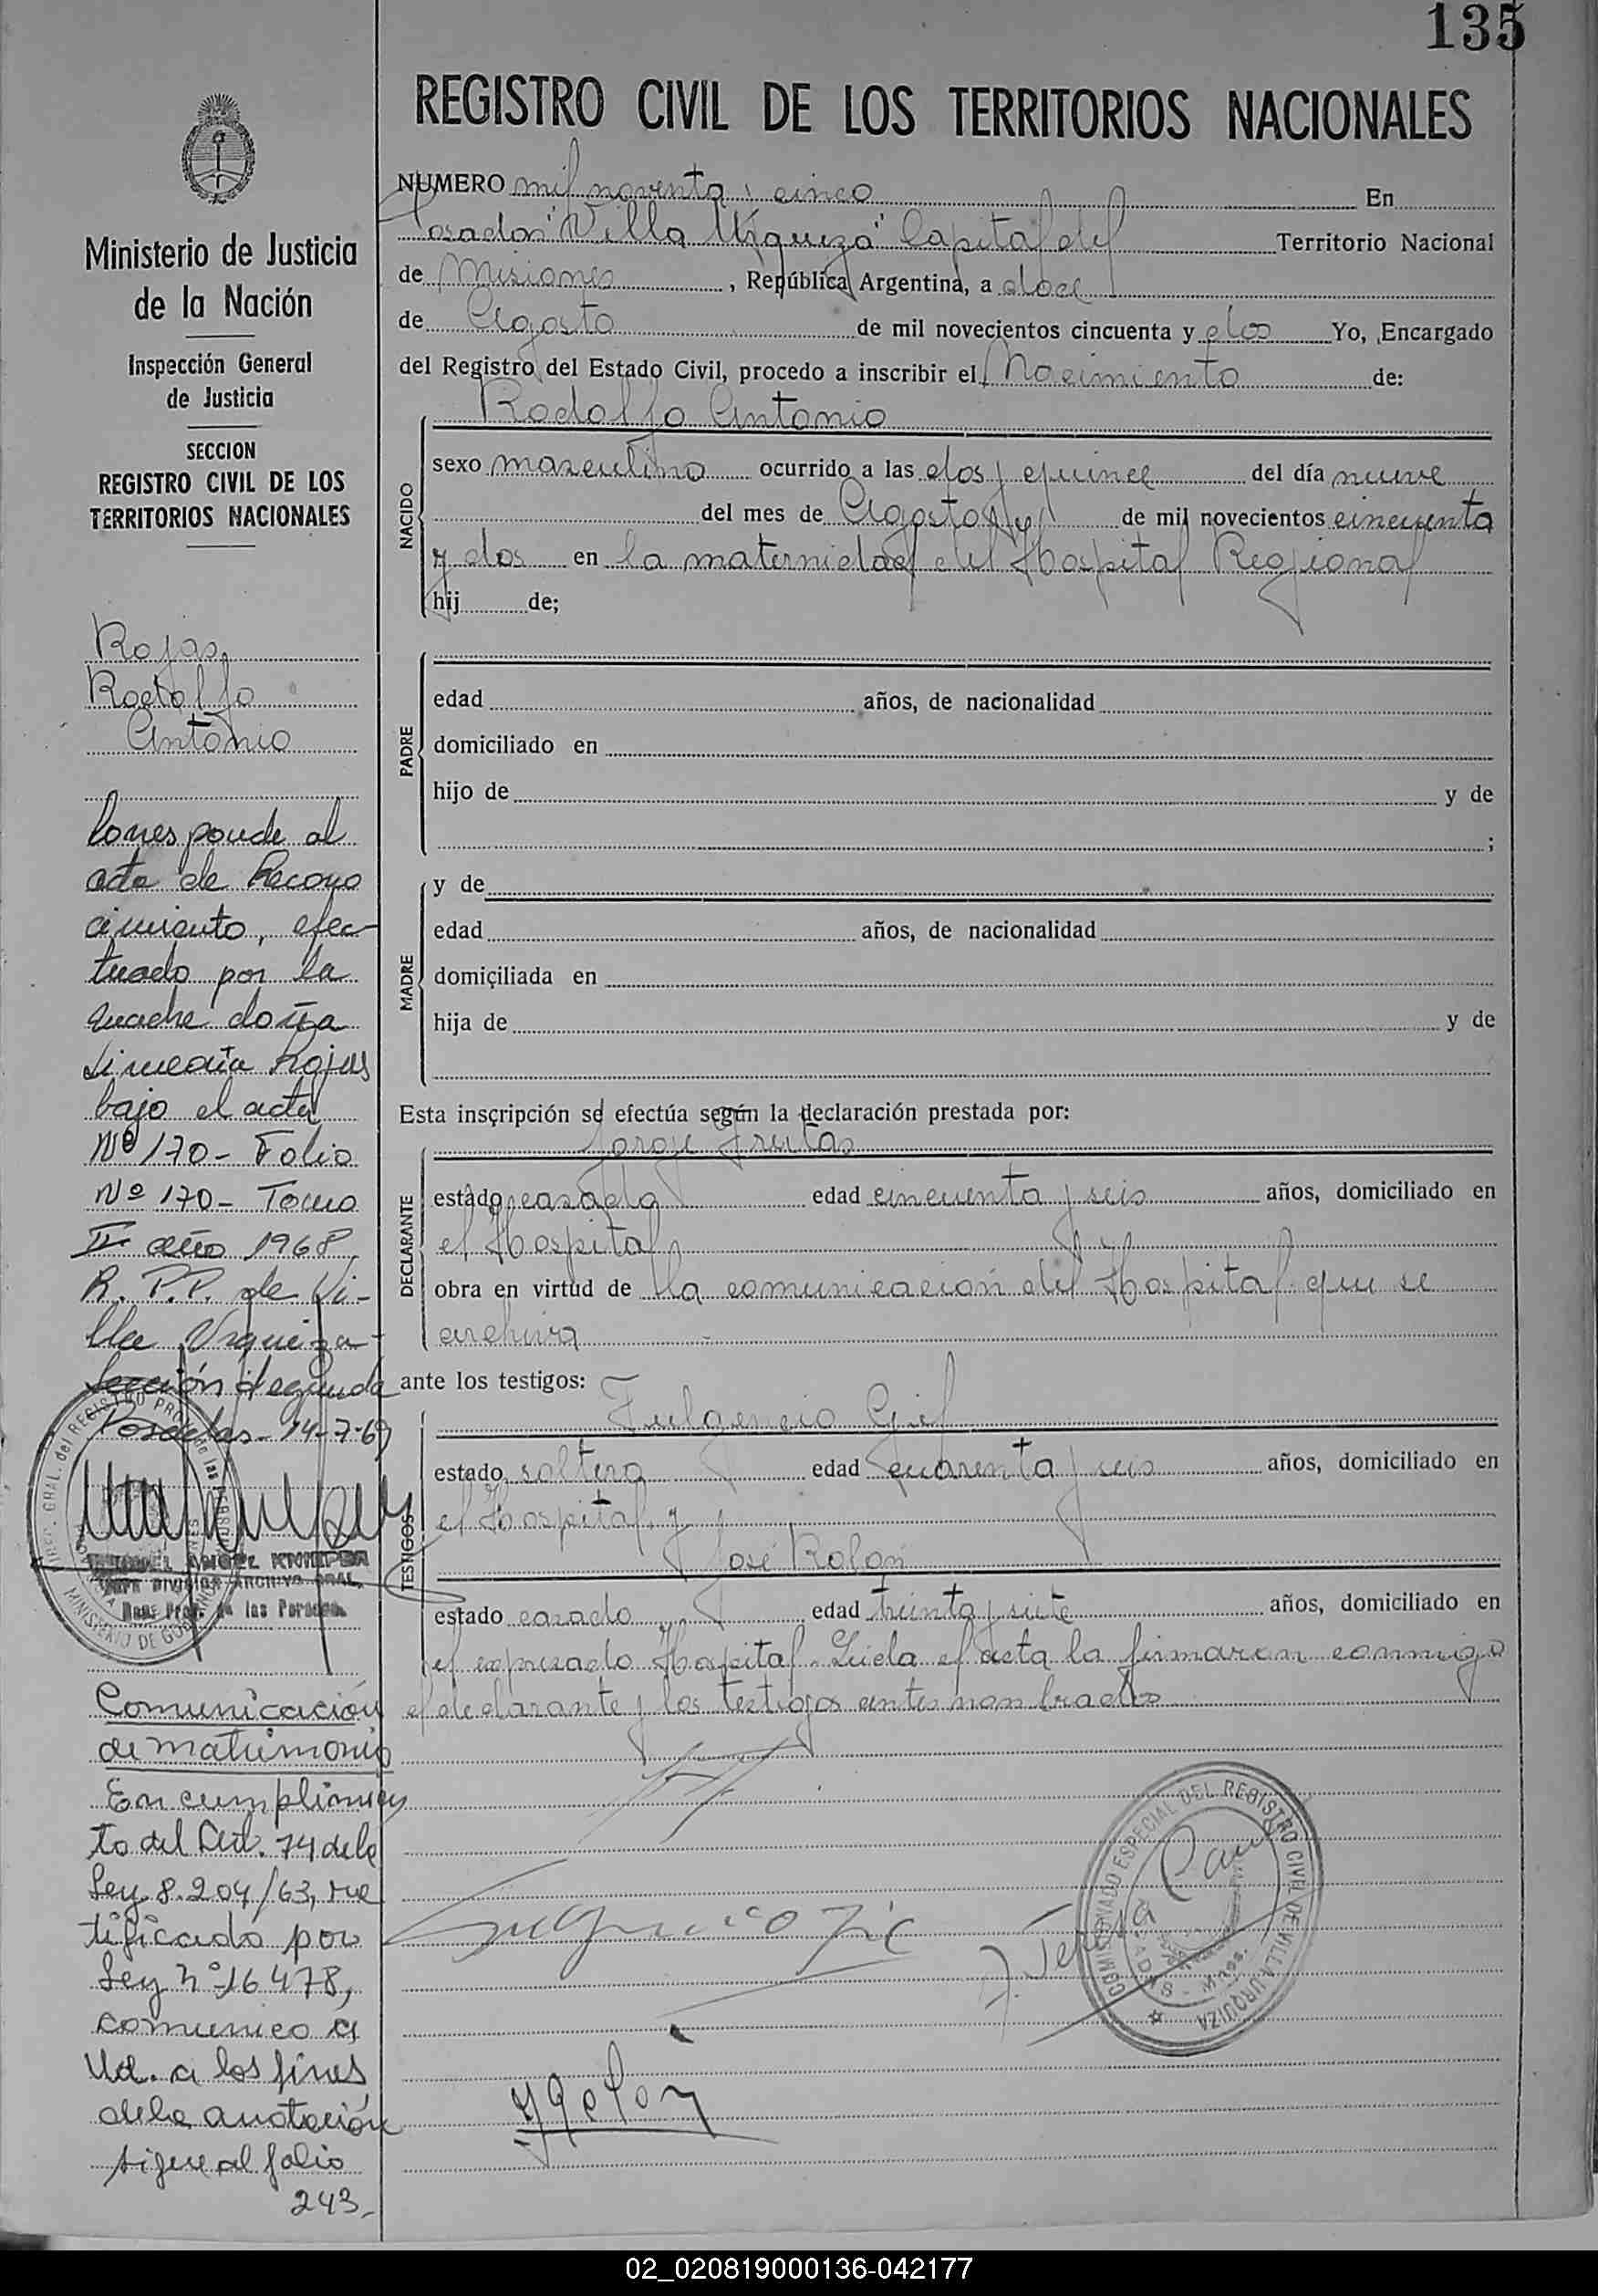 135
REGISTRO CIVIL DE LOS TERRITORIOS NACIONALES
Ministerio de Justicia
de la Nación
Inspección General
de Justicia
SECCION
REGISTRO CIVIL DE LOS
TERRITORIOS NACIONALES
Rojas,
Rodolfo
Antonio
Corresponde al
acta de Recono
cimiento, efec-
tuado por la
madre doña
Simeona Rojas
bajo el acta
Nº 170 - Folio
Nº 170 - Tomo
II año 1968,
R. P.P. de Vi-
lla Urquiza -
Sección Segunda
Posadas - 14-7-69
Comunicación
de matrimonio
En cumplimien
to del Art. 74 de la
Ley 8.204/63, ra
tificada por
Ley nº 16 478,
comunico a
Ud. a los fines
de la anotación
sigue al folio
243.-
NUMERO mil noventa y cinco En
Posadas "Villa Urquiza" Capital del Territorio Nacional
de Misiones, República Argentina, a doce
de Agosto de mil novecientos cincuenta y dos Yo, Encargado
del Registro del Estado Civil, procedo a inscribir el Nacimiento de:
Rodolfo Antonio
NACIDO
sexo masculino ocurrido a las dos y quince del día nueve
del mes de Agosto de mil novecientos cincuenta
y dos en la maternidad del Hospital Regional
hij de;
PADRE
edad años, de nacionalidad
domiciliado en
hijo de y de
;
MADRE
y de
edad años, de nacionalidad
domiciliada en
hija de y de
Esta inscripción se efectúa según la declaración prestada por:
Jorge Freitas
DECLARANTE
estado casado edad cincuenta y seis años, domiciliado en
el Hospital
obra en virtud de la comunicación del Hospital que se
archiva
ante los testigos:
Fulgencio Gil
TESTIGOS
estado soltero edad cuarenta y seis años, domiciliado en
el Hospital y
José Rolón
estado casado edad treinta y siete años, domiciliado en
el expresado Hospital. Leida el acta la firmaron conmigo
el declarante y los testigos antes nombrados
COMISIONADO ESPECIAL DEL REGISTRO CIVIL DE VILLA URQUIZA
02_020819000136-042177